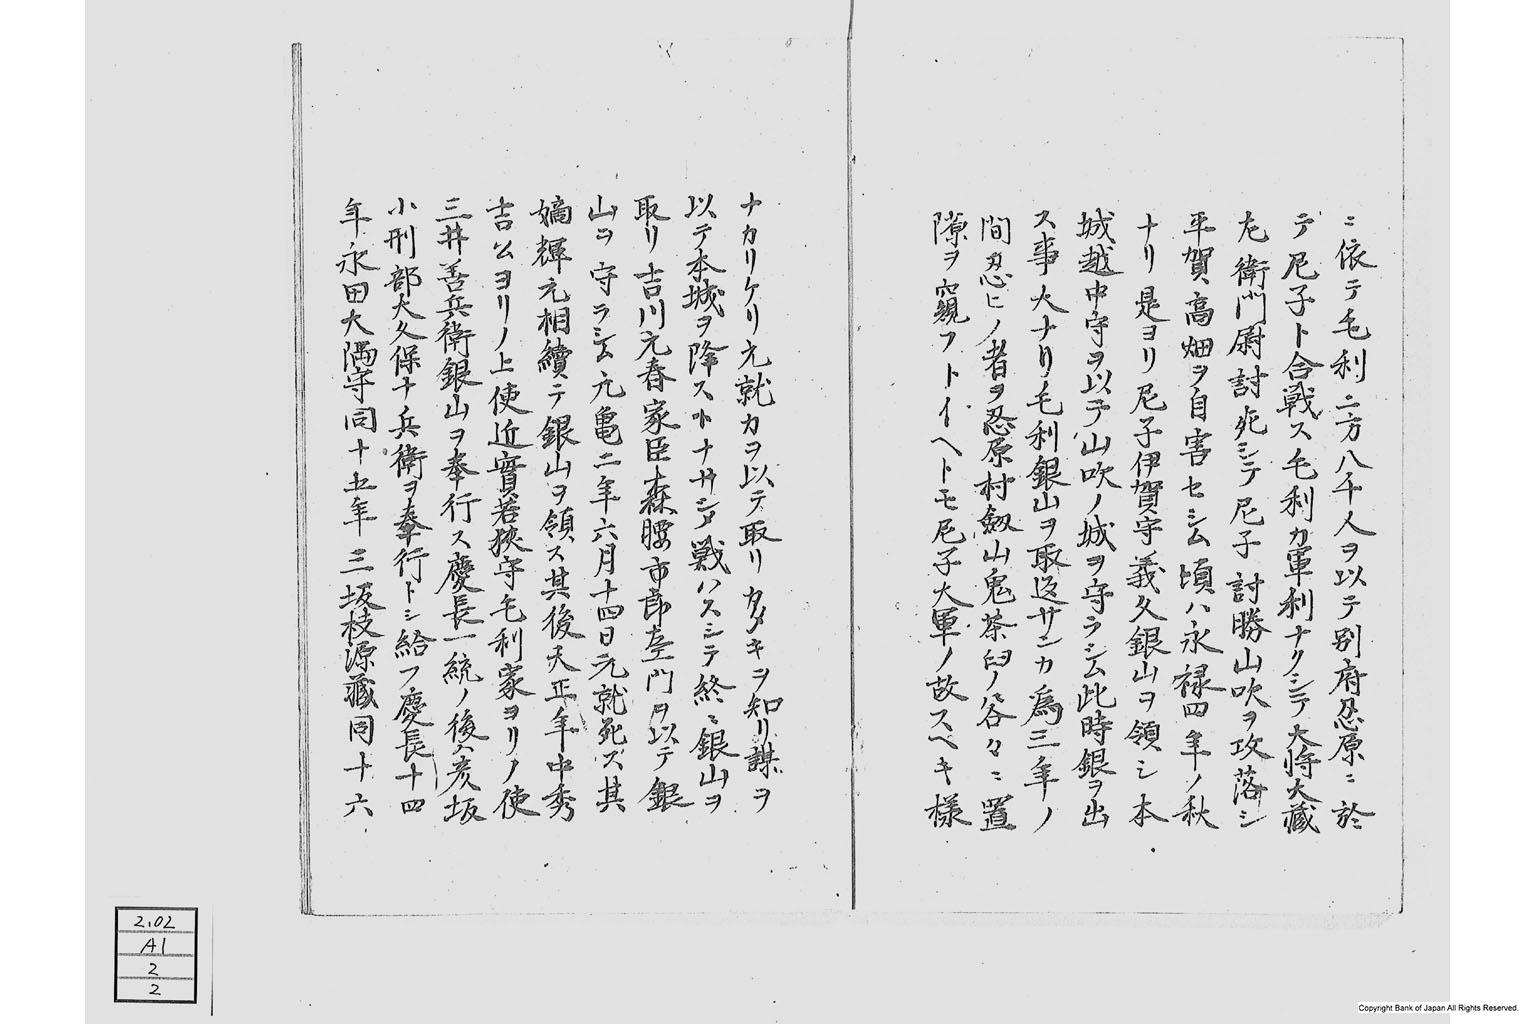 ニ依テ毛利二万八千人ヲ以テ別府忍原ニ於
テ尼子ト合戦ス毛利カ軍利ナクシテ大将大蔵
左衛門尉討死シテ尼子討勝山吹ヲ攻落シ
平賀高畑ヲ自害セシム頃ハ永禄四年ノ秋
ナリ是ヨリ尼子伊賀守義久銀山ヲ領シ本
城越中守ヲ以テ山吹ノ城ヲ守ラシム此時銀ヲ出
ス事大ナリ毛利銀山ヲ取返サンカ為三年ノ
間忍ヒノ者ヲ忍原村劔山鬼茶臼ノ谷々ニ置
隙ヲ窺フトイヘトモ尼子大軍ノ故スヘキ様
ナカリケリ元就力ヲ以テ取リカタキヲ知リ謀ヲ
以テ本城ヲ降ス小ナサシメ戦ハスシテ終ニ銀山ヲ
取リ吉川元春家臣森脇市郎左衛門ヲ以テ銀
山ヲ守ラシム元亀二年六月十四日元就死ス其
嫡輝元相續テ銀山ヲ領ス其後天正年中秀
吉公ヨリノ上使近實若狭守毛利家ヨリノ使
三井善兵衛銀山ヲ奉行ス慶長一統ノ後彦坂
小刑部大久保十兵衛ヲ奉行トシ給フ慶長十四
年永田大隅守同十五年三坂枝源蔵同十六
2.02
A1
2
2
Copyright Bank of Japan All Rights Reserved.